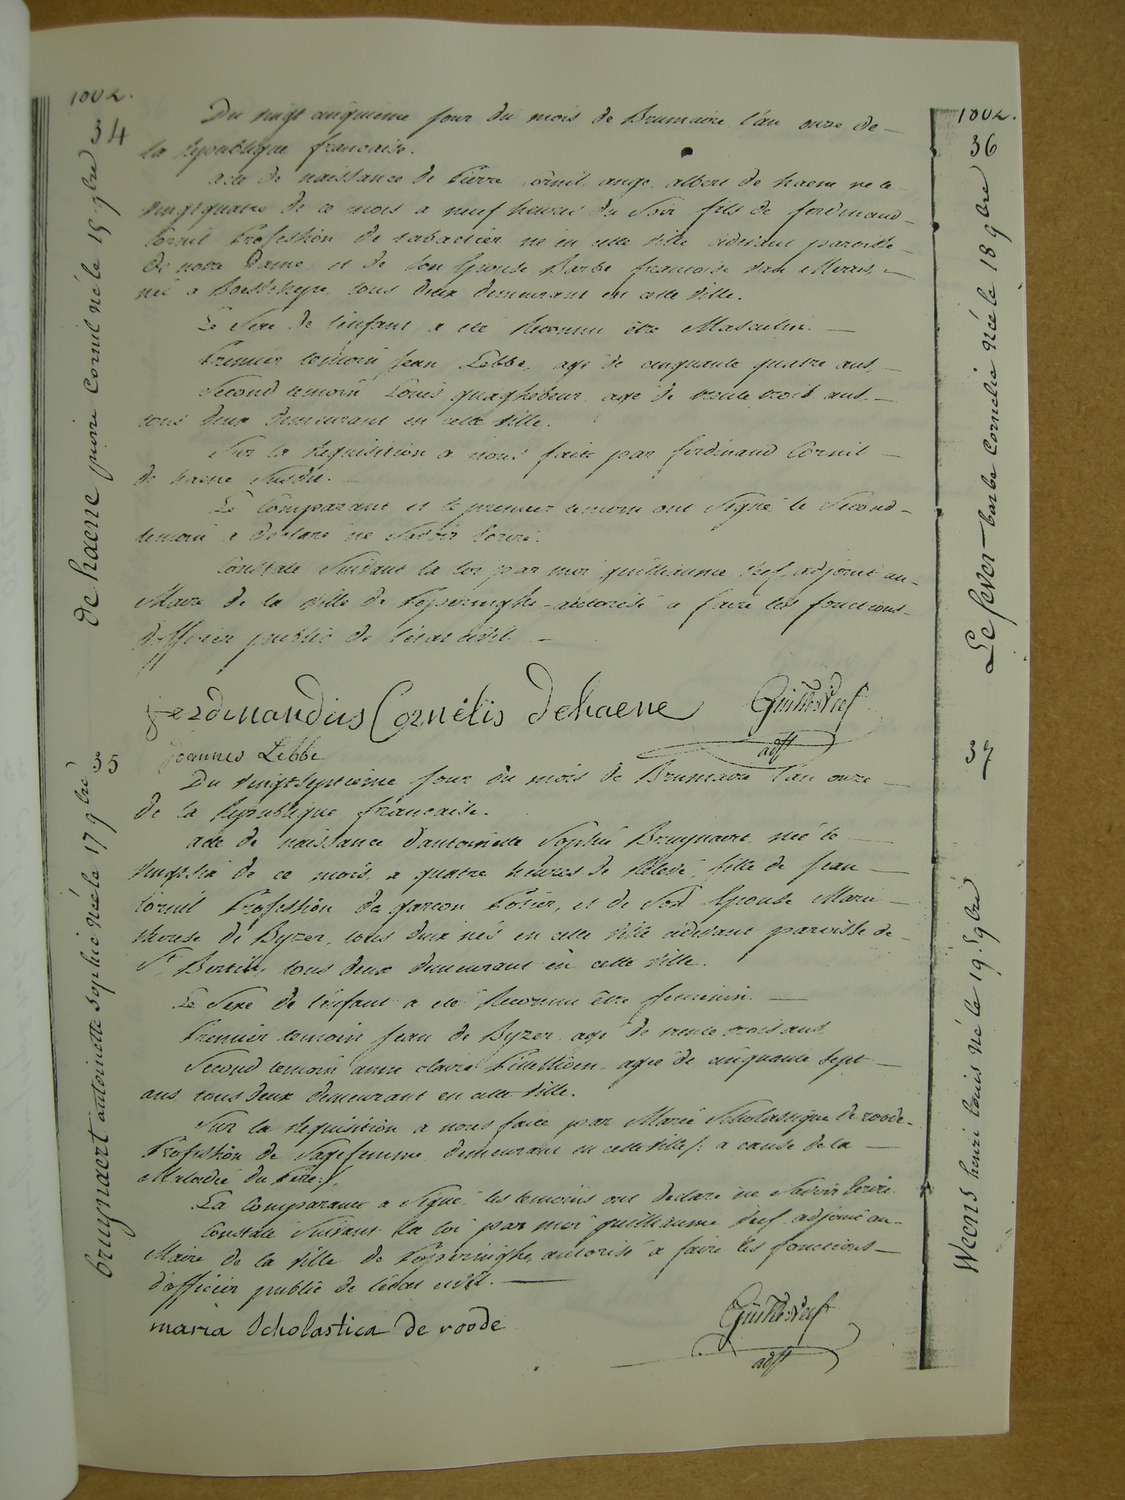 1802.
34
de haene pierre Cornil né le 15 9bre
Du vingt cinquieme jour du mois de Brumaire l'an onze de
la République francaise.
acte de naissance de Pierre Cornil ange albert de haene né le
vingtquatre de ce mois a neuf heures du Soir fils de ferdinand
Cornil Profession de né en cette ville cidevant paroisse
de notre Dame et de Son Epouse Barbe francoise
née a tous deux demeurant en cette Ville.
Le Sexe de l'enfant a eté Reconnu être Masculin.
Premier temoin Jean Lebbe, agé de cinquante quatre ans
Second temoin Louis quaghebeur agé de trente trois ans
tous deux demeurant en cette Ville.
Sur la Requisition a nous faite par ferdinand Cornil
de haene Susdit.
Le Comparant et le premier temoin ont Signé le Second
temoin a Declaré ne Savoir Ecrire.
Constaté Suivant la loi par moi guilliaume adjoint au
Maire de la Ville de Poperinghe autorisé a faire les fonctions
d'officier public de l'etat civil.
Ferdinandus Cornelis Dehaene
adjt
Joannes Lebbe
35
bruynaert antoinette Sophie née le 17 9bre
Du vingtseptieme jour du mois de Brumaire l'an onze
de la République francaise.
acte de naissance d'antoinette Sophie Bruynaert née le
vingtsix de ce mois a quatre heures de fille de Jean
Cornil Profession de garcon et de Son Epouse Marie
therese de Byzer, tous deux nés en cette Ville cidevant paroisse de
St Bertin, tous deux demeurant en cette Ville.
Le Sexe de l'enfant a eté Reconnu être feminin.
Premier temoin Jean de Byzer agé de trente trois ans
Second temoin anne claire agée de cinquante Sept
ans tous deux demeurant en cette Ville.
Sur la Requisition a nous faite par Marie Scholastique De roode
Profession de Sagefemme demeurant en cette Ville (: a cause de la
Maladie du Pere :)
La Comparant a Signé les temoins ont declaré ne Savoir Ecrire
Constaté Suivant la loi par moi guilliaume adjoint au
Maire de la Ville de Poperinghe, autorisé a faire les fonctions
d'officier public de l'etat civil.
maria Scholastica de roode
adjt
1802.
36
Le fever barbe Cornelie née le 18 9bre
37
Weens henri Louis né le 19 9bre